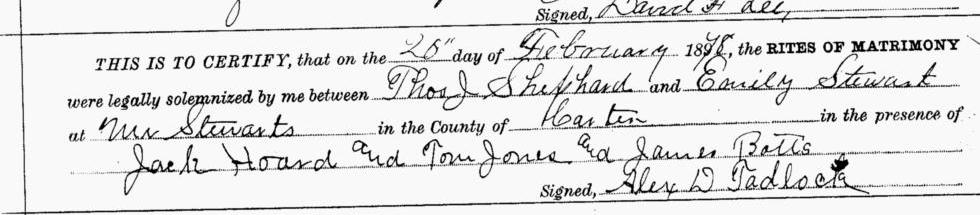 Signed, David H Lee,
THIS IS TO CERTIFY, that on the 25" day of February 1896, the RITES OF MATRIMONY
were legally solemnized by me between Thos J Shephard and Emily Stewart
at Mr Stewarts in the County of Harten in the presence of
Jack Hoard and Tom Jones and James Botts
Signed, Alex D Tadlock